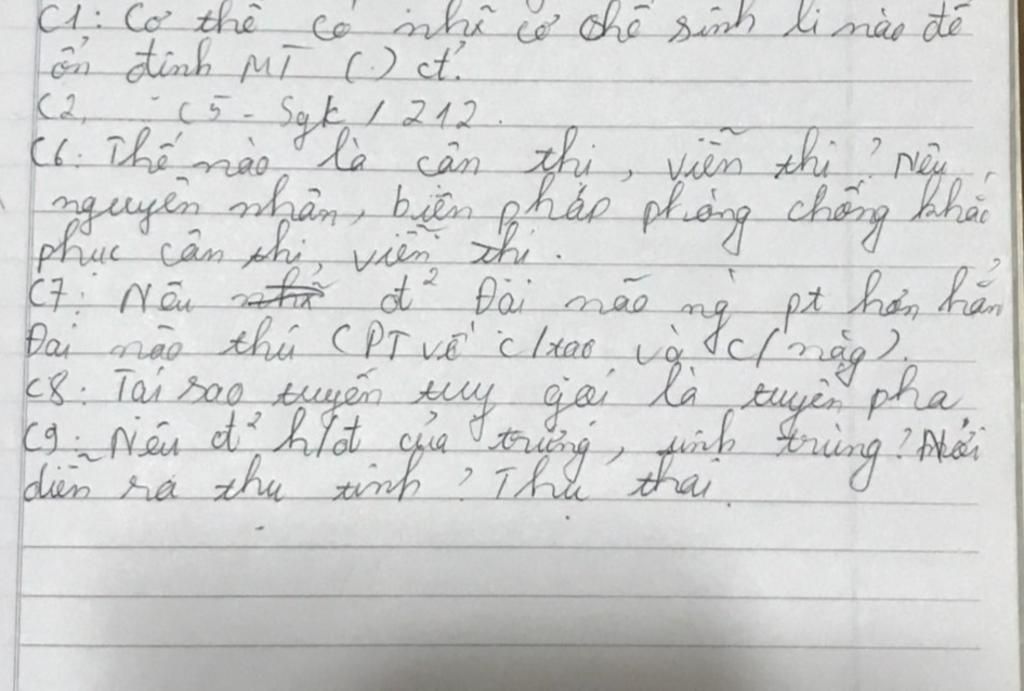 C1: Cơ thể có nhữ cơ chế sinh lí nào để
ổn định MT (.) ct.
C2, - C5 - Sgk / 212.
C6: Thế nào là cận thị, viễn thị? Nêu
nguyên nhân, biện pháp phòng chống khắc
phục cận thị, viễn thị.
C7: Nêu đ² Đại não ng pt hơn hẳn
Đại não thú (PT về c/tạo và c/năg).
C8: Tại sao tuyến tuỵ gọi là tuyến pha
C9: Nêu đ² h/đ của trứng, tinh trùng? Nơi
diễn ra thụ tinh? Thụ thai.